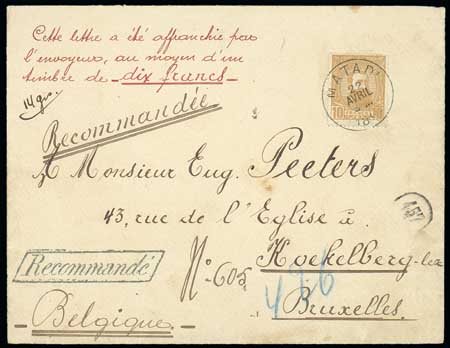 Cette lettre a été affranchie par
l'envoyeur, au moyen d'un
timbre de - dix francs -
14 gr.
Recommandée
MATADI
22
AVRIL
10 FRANCS
A Monsieur Eug. Peeters
43, rue de l'Eglise à
457
Recommandé
No 605
Koekelberg-lez
496
Bruxelles.
- Belgique -